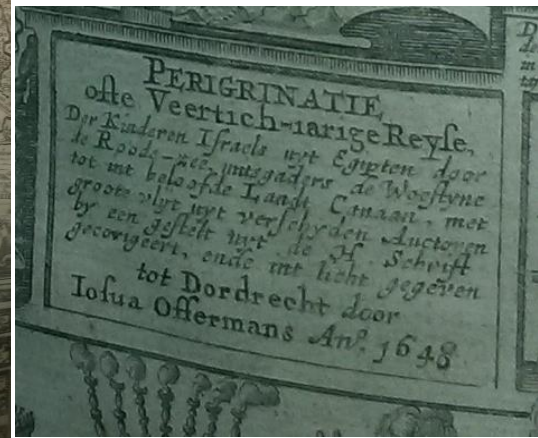 PERIGRINATIE,
ofte Veertich-iarige Reyse,
Der Kinderen Israels uyt Egipten door
de Roode-zee, mitsgaders de Woestyne
tot int beloofde Landt Canaan, met
groote vlyt uyt verscheyden Auctoren
by een gestelt uyt de H. Schrift
gecorigeert, ende int licht gegeven
tot Dordrecht door
Iosua Offermans An°. 1648